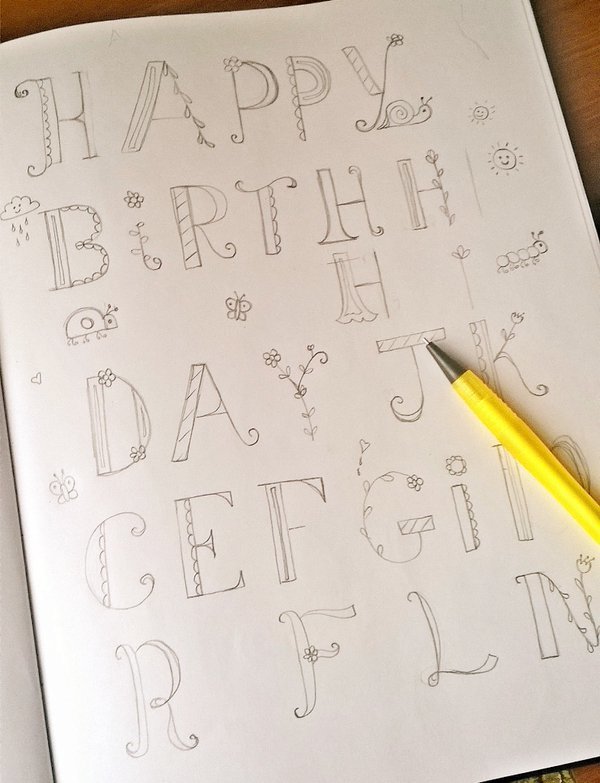 HAPPY
BiRTHH
H
DAY JK
CEFGiN
RFLN